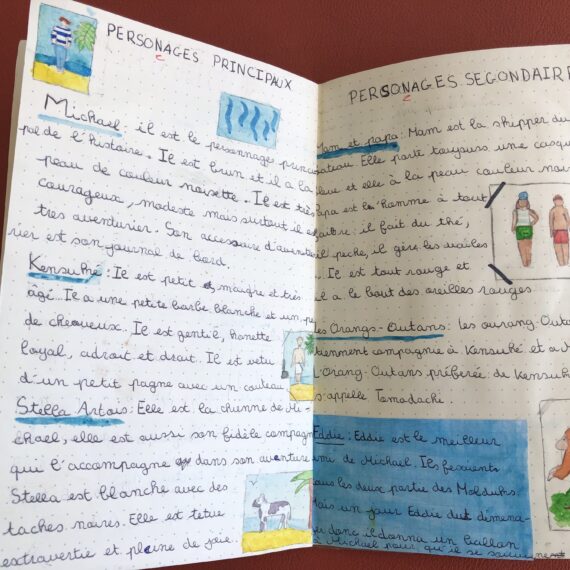 PERSONAGES PRINCIPAUX
c
Michael : il est le personnage princi
pal de l'histoire. Il est brun et il a la
peau de couleur noisette. Il est très
courageux, modeste mais surtout il a
très aventurier. Son accessoire d'aventu
rier est son journal de bord
Kensuké : Il est petit, maigre et très
âgé. Il a une petite barbe blanche et un pe
de cheveux. Il est gentil, honette
loyal, adroit et droit. Il est vetu
d'un petit pagne avec un couteau
Stella Artois : Elle est la chienne de Mi-
chael, elle est aussi son fidèle compagn
qui l'accompagne dans son aventure
Stella est blanche avec des
taches noires. Elle est tetue
extravertie et pleine de joie.
PERSONAGES SEGONDAIRE
c
Mam et papa : Mam est la skipper du
bateau. Elle porte toujours une casqu
bleue et elle à la peau couleur nois
Papa est l'homme à tout
faire : il fait du thé,
il peche, il gère les voiles
. Il est tout rouge et
il a le bout des oreilles rouges
les Orangs-Outans : les ourang-Outa
tiennent compagnie à Kensuké et a M
L'Orang-Outans préferée de Kensuk
s'appele Tomodachi.
Eddie : Eddie est le meilleur
ami de Michael. Ils fesaients
tous les deux partie des Mobduhs.
Mais un jour Eddie dut démena-
donc il donna un ballon
a Michael pour qu'il se souvienne